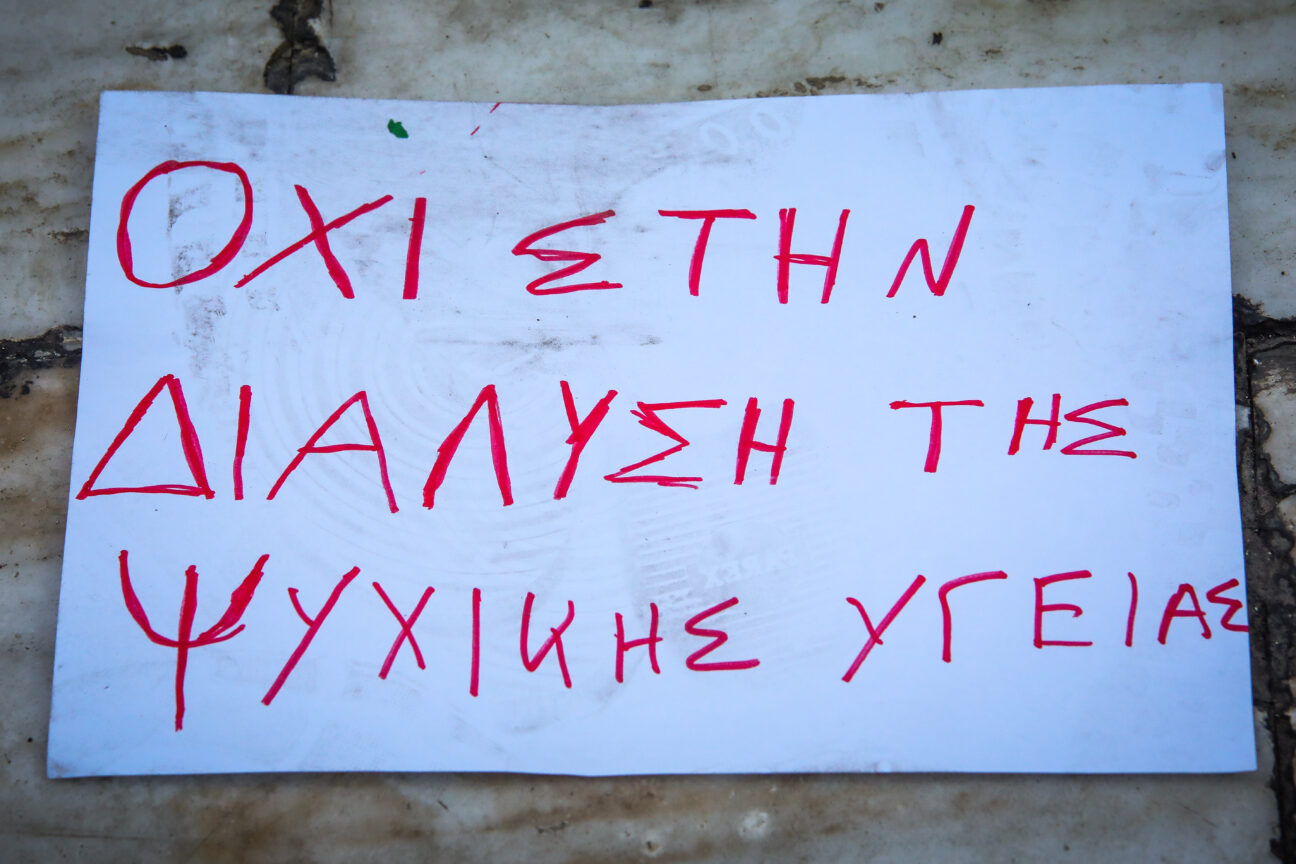 ΟΧΙ ΣΤΗΝ
ΔΙΑΛΥΣΗ ΤΗΣ
ΨΥΧΙΚΗΣ ΥΓΕΙΑΣ